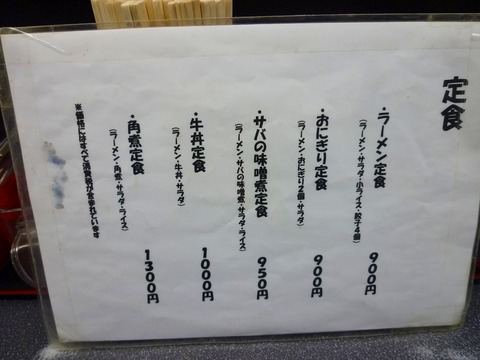 定食
・ラーメン定食 900円
(ラーメン・サラダ・小ライス・餃子4個)
・おにぎり定食 900円
(ラーメン・おにぎり2個・サラダ)
・サバの味噌煮定食 950円
(ラーメン・サバの味噌煮・サラダ・ライス)
・牛丼定食 1000円
(ラーメン・牛丼・サラダ)
・角煮定食 1300円
(ラーメン・角煮・サラダ・ライス)
※価格にはすべて消費税が含まれています